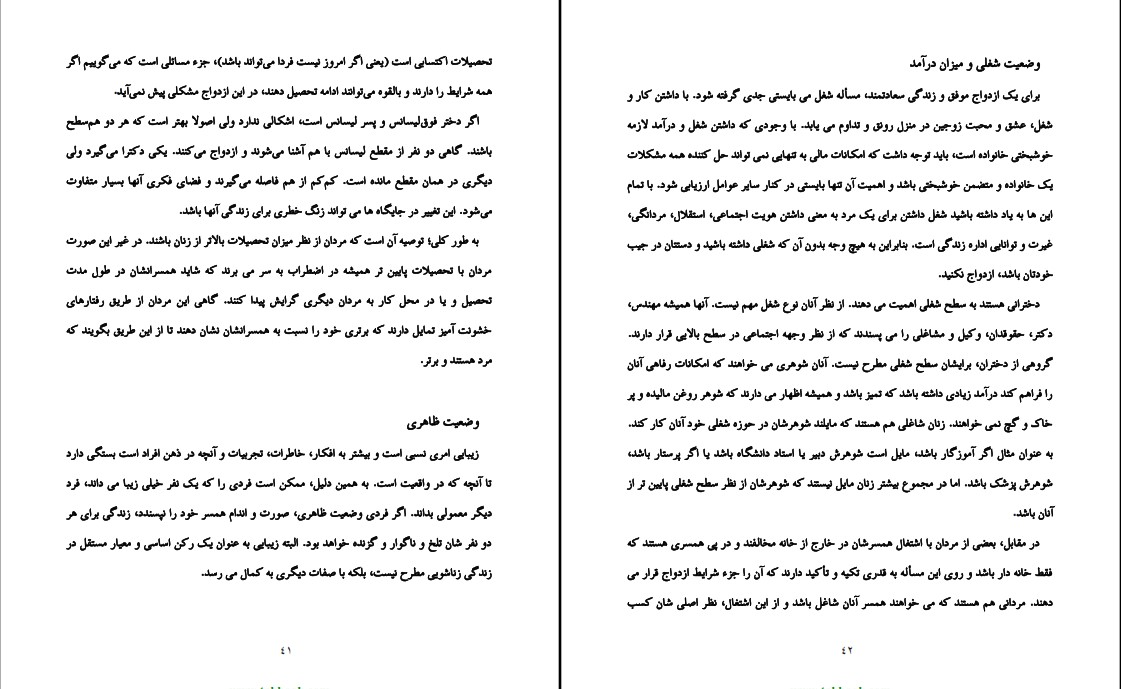 تحصیلات اکتسابی است (یعنی اگر امروز نیست فردا می‌تواند باشد)، جزء مسائلی است که می‌گوییم اگر
همه شرایط را دارند و بالقوه می‌توانند ادامه تحصیل دهند، در این ازدواج مشکلی پیش نمی‌آید.
اگر دختر فوق‌لیسانس و پسر لیسانس است، اشکالی ندارد ولی اصولا بهتر است که هر دو هم‌سطح
باشند. گاهی دو نفر از مقطع لیسانس با هم آشنا می‌شوند و ازدواج می‌کنند. یکی دکترا می‌گیرد ولی
دیگری در همان مقطع مانده است. کم‌کم از هم فاصله می‌گیرند و فضای فکری آنها بسیار متفاوت
می‌شود. این تغییر در جایگاه ها می تواند زنگ خطری برای زندگی آنها باشد.
به طور کلی؛ توصیه آن است که مردان از نظر میزان تحصیلات بالاتر از زنان باشند. در غیر این صورت
مردان با تحصیلات پایین تر همیشه در اضطراب به سر می برند که شاید همسرانشان در طول مدت
تحصیل و یا در محل کار به مردان دیگری گرایش پیدا کنند. گاهی این مردان از طریق رفتارهای
خشونت آمیز تمایل دارند که برتری خود را نسبت به همسرانشان نشان دهند تا از این طریق بگویند که
مرد هستند و برتر.
وضعیت ظاهری
زیبایی امری نسبی است و بیشتر به افکار، خاطرات، تجربیات و آنچه در ذهن افراد است بستگی دارد
تا آنچه که در واقعیت است. به همین دلیل، ممکن است فردی را که یک نفر خیلی زیبا می داند، فرد
دیگر معمولی بداند. اگر فردی وضعیت ظاهری، صورت و اندام همسر خود را نپسندد، زندگی برای هر
دو نفر شان تلخ و ناگوار و گزنده خواهد بود. البته زیبایی به عنوان یک رکن اساسی و معیار مستقل در
زندگی زناشویی مطرح نیست، بلکه با صفات دیگری به کمال می رسد.
٤١
وضعیت شغلی و میزان درآمد
برای یک ازدواج موفق و زندگی سعادتمند، مسأله شغل می بایستی جدی گرفته شود. با داشتن کار و
شغل، عشق و محبت زوجین در منزل رونق و تداوم می یابد. با وجودی که داشتن شغل و درآمد لازمه
خوشبختی خانواده است، باید توجه داشت که امکانات مالی به تنهایی نمی تواند حل کننده همه مشکلات
یک خانواده و متضمن خوشبختی باشد و اهمیت آن تنها بایستی در کنار سایر عوامل ارزیابی شود. با تمام
این ها به یاد داشته باشید شغل داشتن برای یک مرد به معنی داشتن هویت اجتماعی، استقلال، مردانگی،
غیرت و توانایی اداره زندگی است. بنابراین به هیچ وجه بدون آن که شغلی داشته باشید و دستتان در جیب
خودتان باشد، ازدواج نکنید.
دخترانی هستند به سطح شغلی اهمیت می دهند. از نظر آنان نوع شغل مهم نیست. آنها همیشه مهندس،
دکتر، حقوقدان، وکیل و مشاغلی را می پسندند که از نظر وجهه اجتماعی در سطح بالایی قرار دارند.
گروهی از دختران، برایشان سطح شغلی مطرح نیست. آنان شوهری می خواهند که امکانات رفاهی آنان
را فراهم کند درآمد زیادی داشته باشد که تمیز باشد و همیشه اظهار می دارند که شوهر روغن مالیده و پر
خاک و گچ نمی خواهند. زنان شاغلی هم هستند که مایلند شوهرشان در حوزه شغلی خود آنان کار کند.
به عنوان مثال اگر آموزگار باشد، مایل است شوهرش دبیر یا استاد دانشگاه باشد یا اگر پرستار باشد،
شوهرش پزشک باشد. اما در مجموع بیشتر زنان مایل نیستند که شوهرشان از نظر سطح شغلی پایین تر از
آنان باشد.
در مقابل، بعضی از مردان با اشتغال همسرشان در خارج از خانه مخالفند و در پی همسری هستند که
فقط خانه دار باشد و روی این مسأله به قدری تکیه و تأکید دارند که آن را جزء شرایط ازدواج قرار می
دهند. مردانی هم هستند که می خواهند همسر آنان شاغل باشد و از این اشتغال، نظر اصلی شان کسب
٤٢